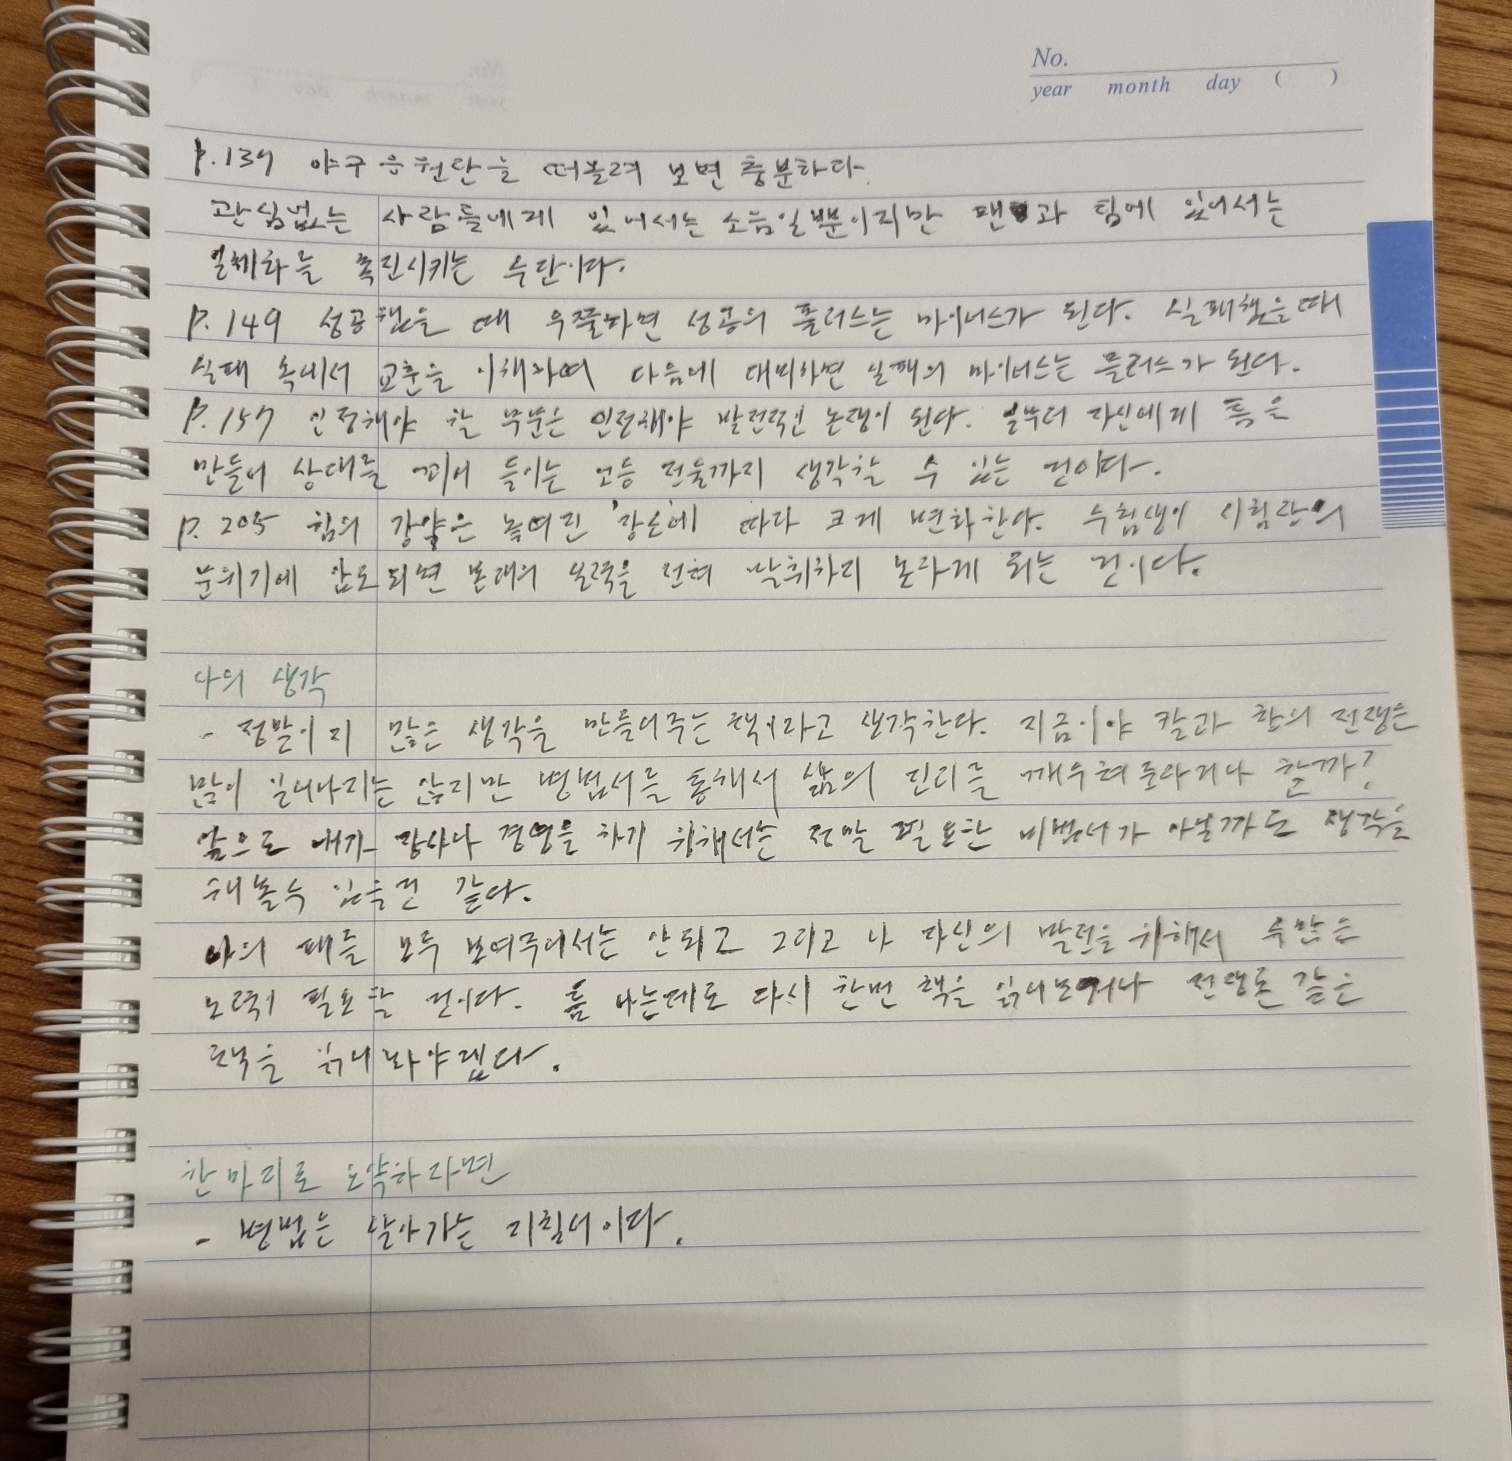 No.
year month day ( )
p.139 야구 응원단을 떠올려 보면 충분하다.
관심없는 사람들에게 있어서는 소음일뿐이지만 팬과 팀에 있어서는
일체화를 촉진시키는 수단이다.
p.149 성공했을 때 우쭐하면 성공의 플러스는 마이너스가 된다. 실패했을때
실패 속에서 교훈을 이해하여 다음에 대비하면 실패의 마이너스는 플러스가 된다.
p.157 인정해야 할 부분은 인정해야 발전적인 논쟁이 된다. 일부러 자신에게 틈을
만들어 상대를 꾀어 들이는 고등 전술까지 생각할 수 있는 것이다.
p.205 힘의 강약은 놓여진 '장소'에 따라 크게 변화한다. 수험생이 시험장의
분위기에 압도되면 본래의 실력을 전혀 발휘하지 못하게 되는 것이다.
나의 생각
- 정말이지 많은 생각을 만들어주는 책이라고 생각한다. 지금이야 칼과 창의 전쟁은
많이 일어나지는 않지만 병법서를 통해서 삶의 진리를 깨우쳐 준다거나 할까?
앞으로 내가 장사나 경영을 하기 위해서는 정말 필요한 비법서가 아닐까도 생각을
해볼수 있을것 같다.
나의 패를 모두 보여주어서는 안되고 그리고 나 자신의 발전을 위해서 수많은
노력이 필요할 것이다. 틈 나는데로 다시 한번 책을 읽어보거나 전쟁론 같은
책을 읽어봐야겠다.
한마디로 요약하라면
- 병법은 살아가는 지침서이다.